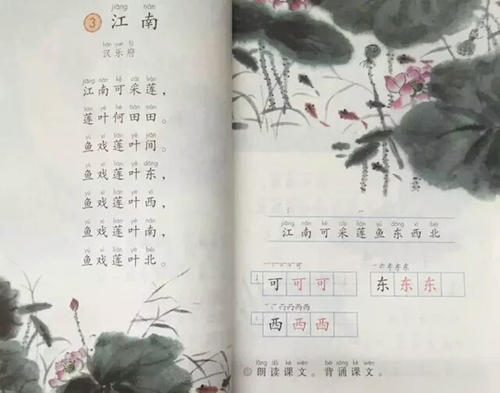 3 江南
jiāng nán
汉乐府
jiāng nán kě cǎi lián
江南可采莲，
lián yè hé tián tián
莲叶何田田。
yú xì lián yè jiān
鱼戏莲叶间。
yú xì lián yè dōng
鱼戏莲叶东，
yú xì lián yè xī
鱼戏莲叶西，
yú xì lián yè nán
鱼戏莲叶南，
yú xì lián yè běi
鱼戏莲叶北。
jiāng nán kě cǎi lián yú dōng xī běi
江南可采莲鱼东西北
可可可
东东东
西西西
lǎng dú kè wén bèi sòng kè wén
朗读课文。背诵课文。